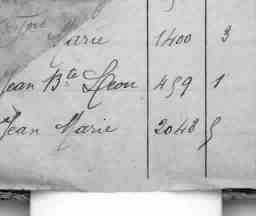 Marie 1400 3
Jean Bte Léon 459 1
Jean Marie 2043 5